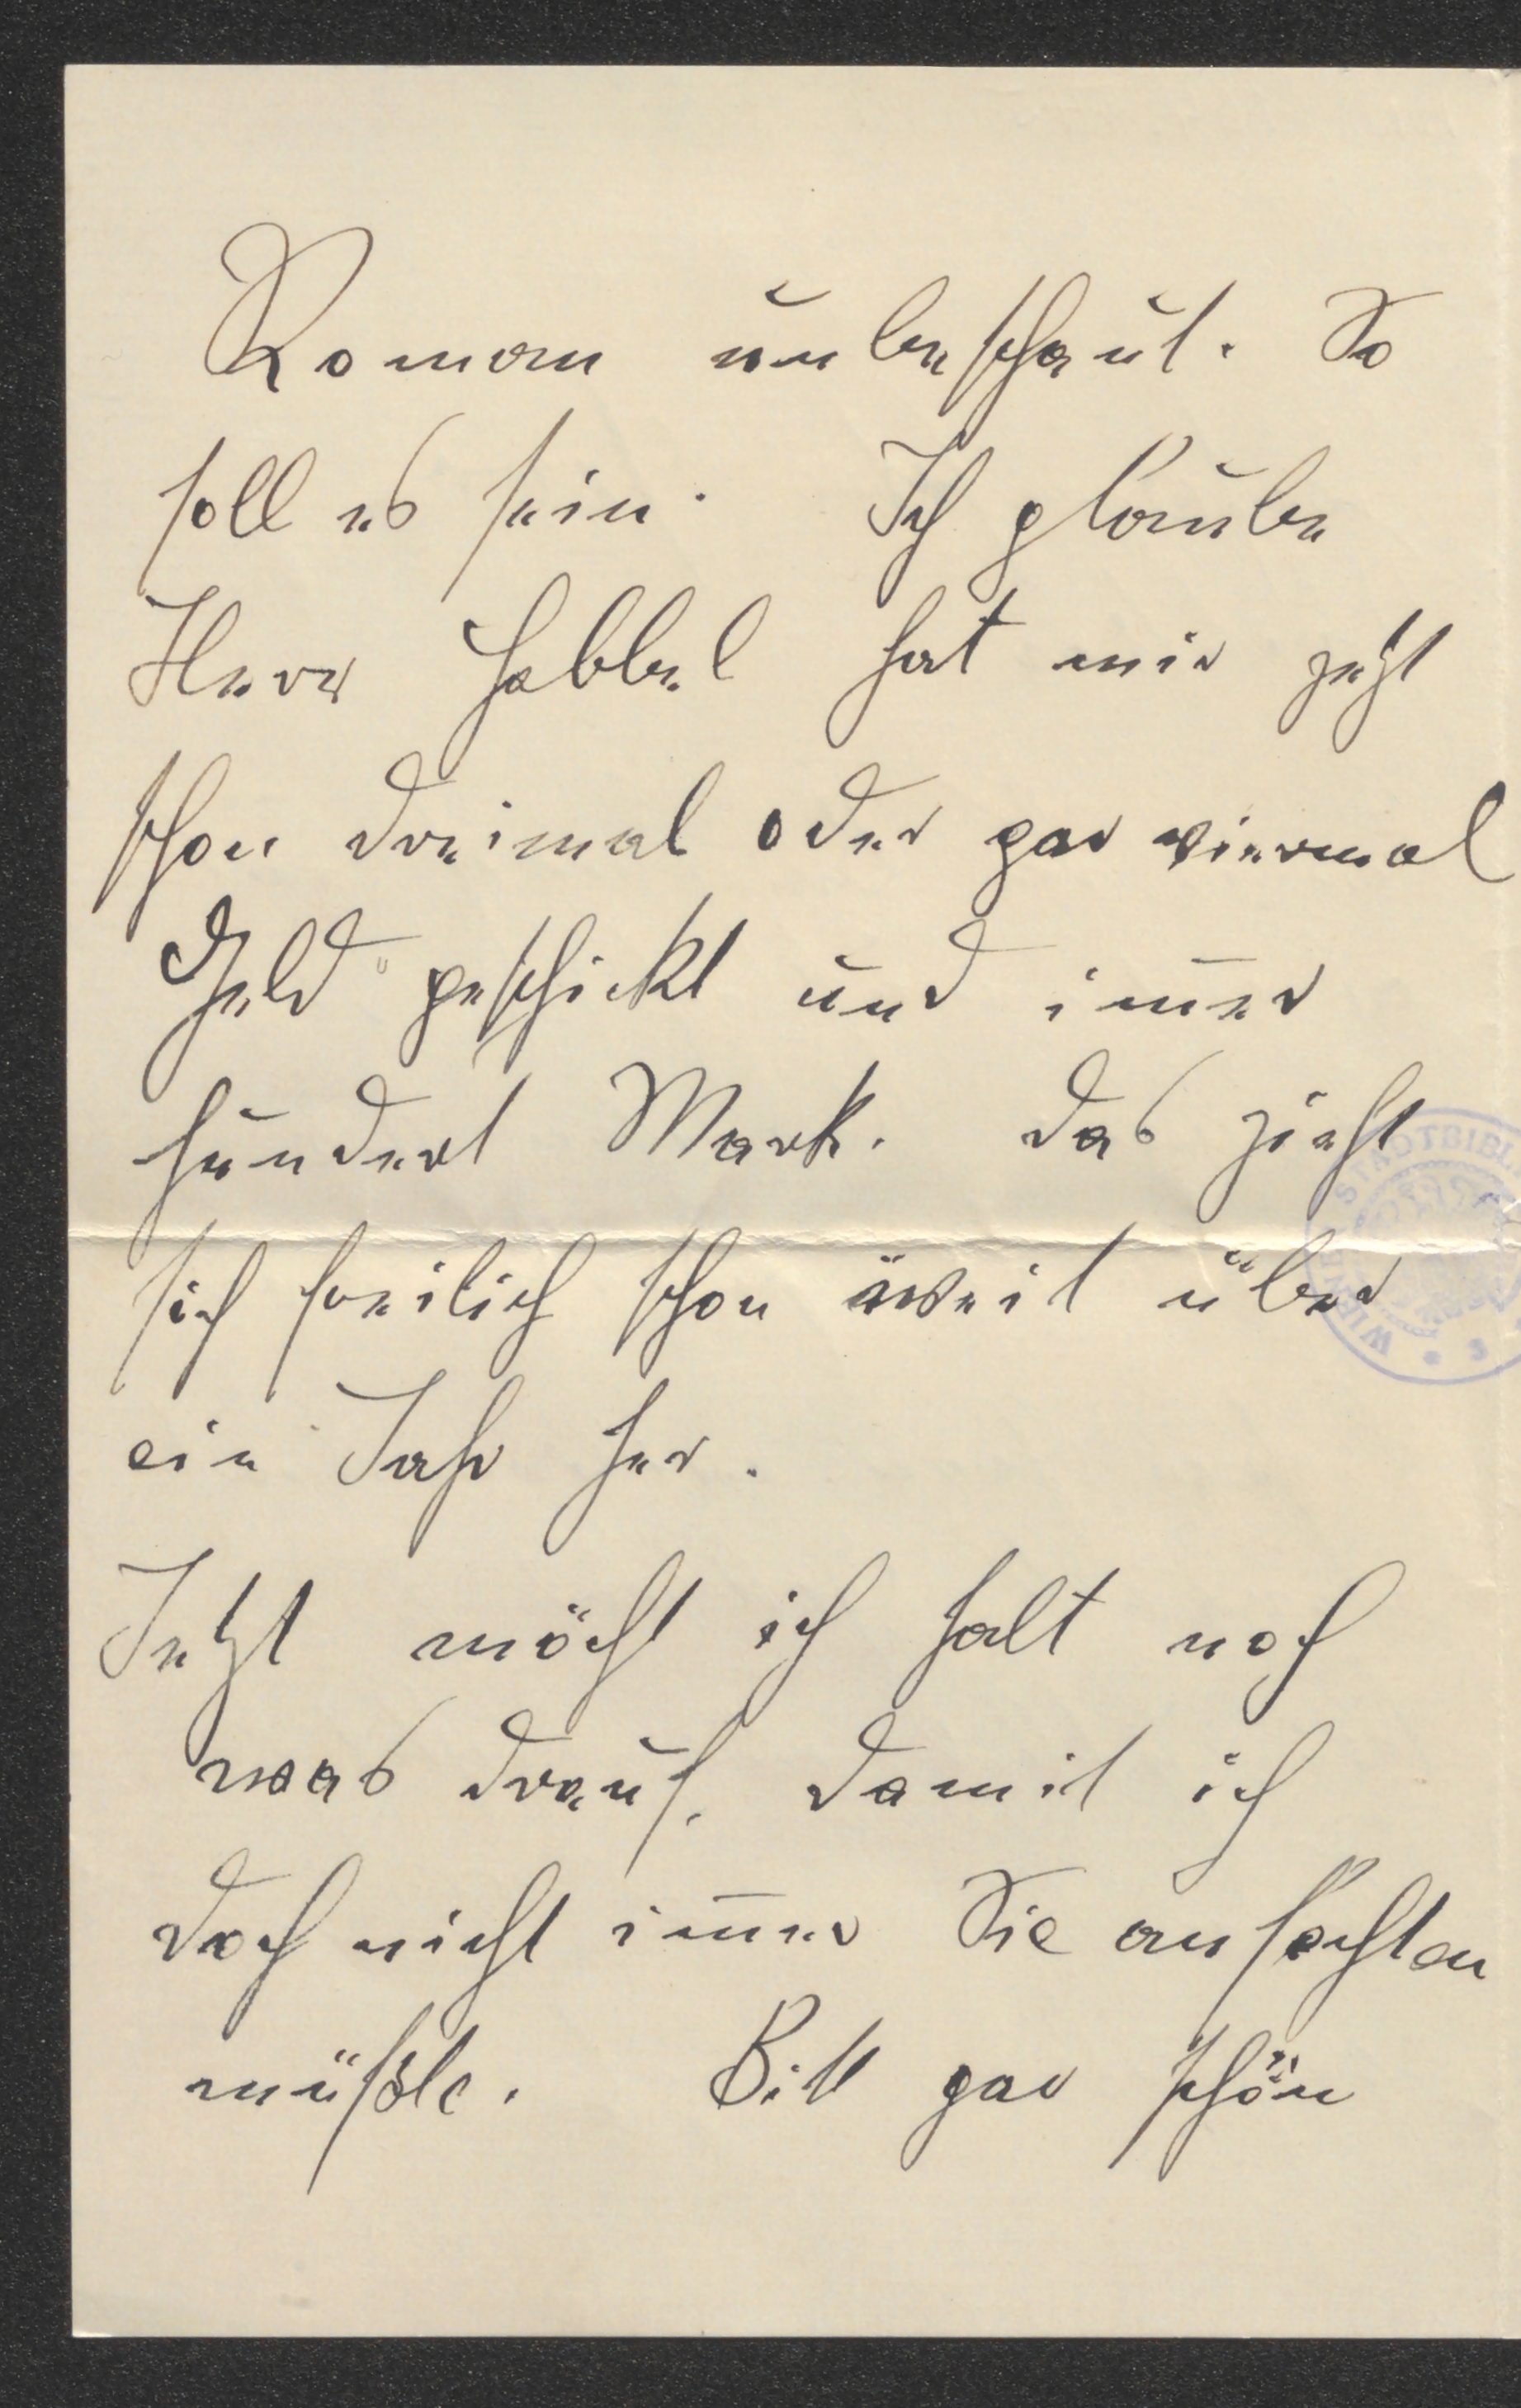 Roman unbeschaut. So
soll es sein. Ich glaube
Herr Habbel hat mir jetzt
schon dreimal oder gar viermal
Geld geschickt und im̅er
hundert Mark. Das zieht
sich freilich schon weit über
ein Jahr her.
Jetzt möcht ich halt noch
was drauf, damit ich
doch nicht im̅er Sie anfechten
müßte. Bitt gar schön